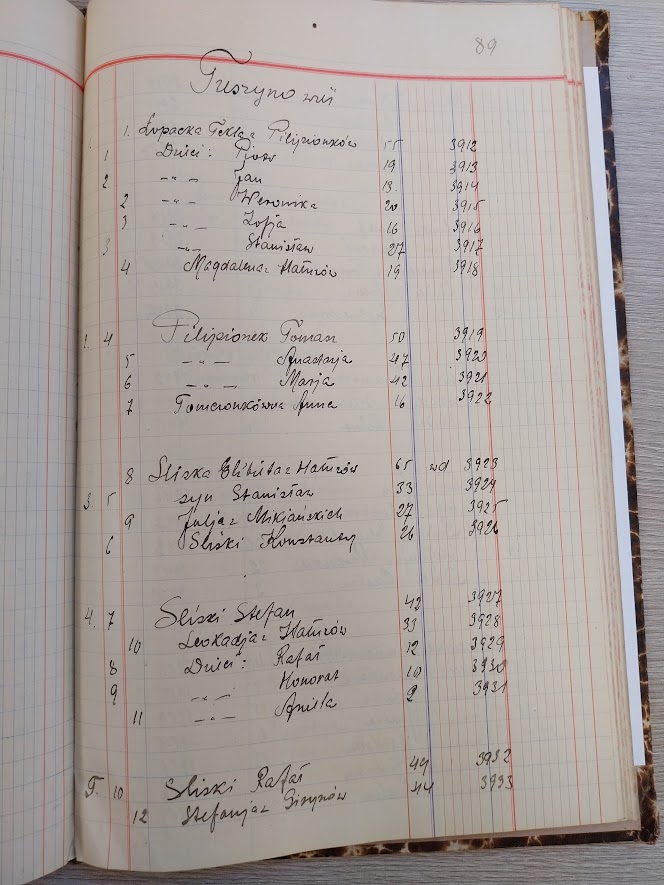 89
Tuszyno wieś
1. 1. Łopacka Tekla z Filipionków 55 3912
1 Dzieci: Piotr 19 3913
2 -"- Jan 13 3914
2 -"- Weronika 20 3915
3 -"- Zofja 16 3916
3 -"- Stanisław 27 3917
4 Magdalena z 19 3918
2. 4 Filipionek Toman 50 3919
5 -"- Anastazja 47 3920
6 -"- Marja 42 3921
7 Anna 16 3922
8 Śliska Elżbieta z 65 wd 3923
3. 5 syn Stanisław 33 3924
9 Julja z 27 3925
6 Śliski Konstanty 26 3926
4. 7 Śliski Stefan 42 3927
10 Leokadja z 33 3928
8 Dzieci: Rafał 12 3929
9 -"- Honorat 10 3930
11 -"- Aniela 2 3931
5. 10 Śliski Rafał 49 3932
12 Stefanja z 44 3933